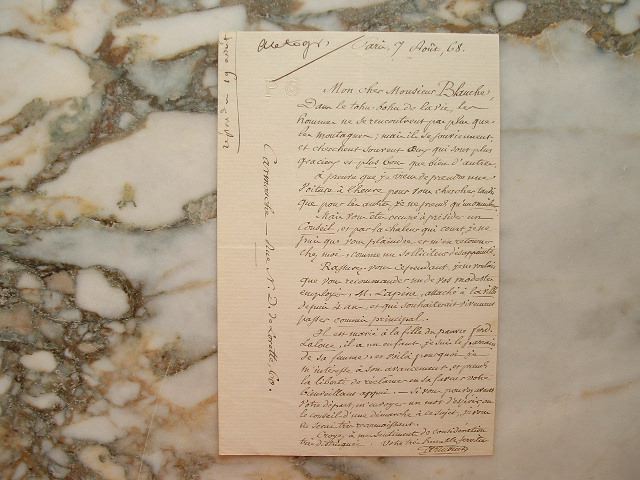 Paris, 7 Août, 68.
répondu 19 août
Mon cher Monsieur Blanche,
Dans le tohu-bohu de la vie, les
hommes ne se rencontrent pas plus que
les montagnes; mais ils se souviennent
et cherchent souvent ceux qui sont plus
gracieux et plus bons que bien d'autres,
à preuve que je viens de prendre une
voiture à l'heure pour vous chercher tandis
que pour les autres je ne prends qu'un omnibus.
Mais vous êtes occupé à présider un
Conseil, et par la chaleur qui court, je ne
puis que vous plaindre et m'en retourner
chez moi, comme un solliciteur désappointé.
Rassurez-vous cependant, je ne voulais
que vous recommander un de vos modestes
employés, M. Lapeine, attaché à la ville
depuis 1x an, et qui souhaiterait vivement
passer commis principal.
Il est marié à la fille du pauvre ferd.
Laloue, il a un enfant, je suis le parrain
de sa femme: et voilà pourquoi je
m'intéresse à son avancement, et prends
la liberté de réclamer en sa faveur votre
bienveillant appui. — Si vous pouvez avant
votre départ, m'envoyer un mot d'espoir ou
le conseil d'une démarche à ce sujet, je vous
en serai très reconnaissant.
Croyez à mes sentiments de considération
très distinguée. Votre très humble serviteur
Carmouche — Rue N. D. de Lorette, 60.